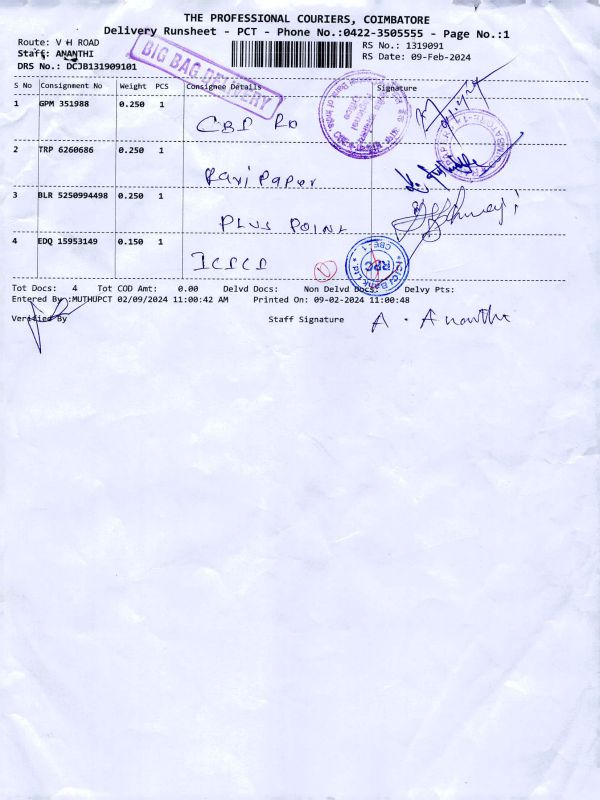 THE PROFESSIONAL COURIERS, COIMBATORE
Delivery Runsheet - PCT - Phone No.:0422-3505555 - Page No.:1
Route: V H ROAD
RS No.: 1319091
Staff: ANANTHI
RS Date: 09-Feb-2024
DRS No.: DCJB131909101
BIG BAG DELIVERY
S No Consignment No Weight PCS Consignee Details Signature
1 GPM 351988 0.250 1
2 TRP 6260686 0.250 1
Ravi Paper
3 BLR 5250994498 0.250 1
PLUS POINT
4 EDQ 15953149 0.150 1
ICICI
ICICI Bank Ltd * RPC * CBE-1
Tot Docs: 4 Tot COD Amt: 0.00 Delvd Docs: Non Delvd Docs: Delvy Pts:
Entered By :MUTHUPCT 02/09/2024 11:00:42 AM Printed On: 09-02-2024 11:00:48
Verified By Staff Signature A. Ananthi